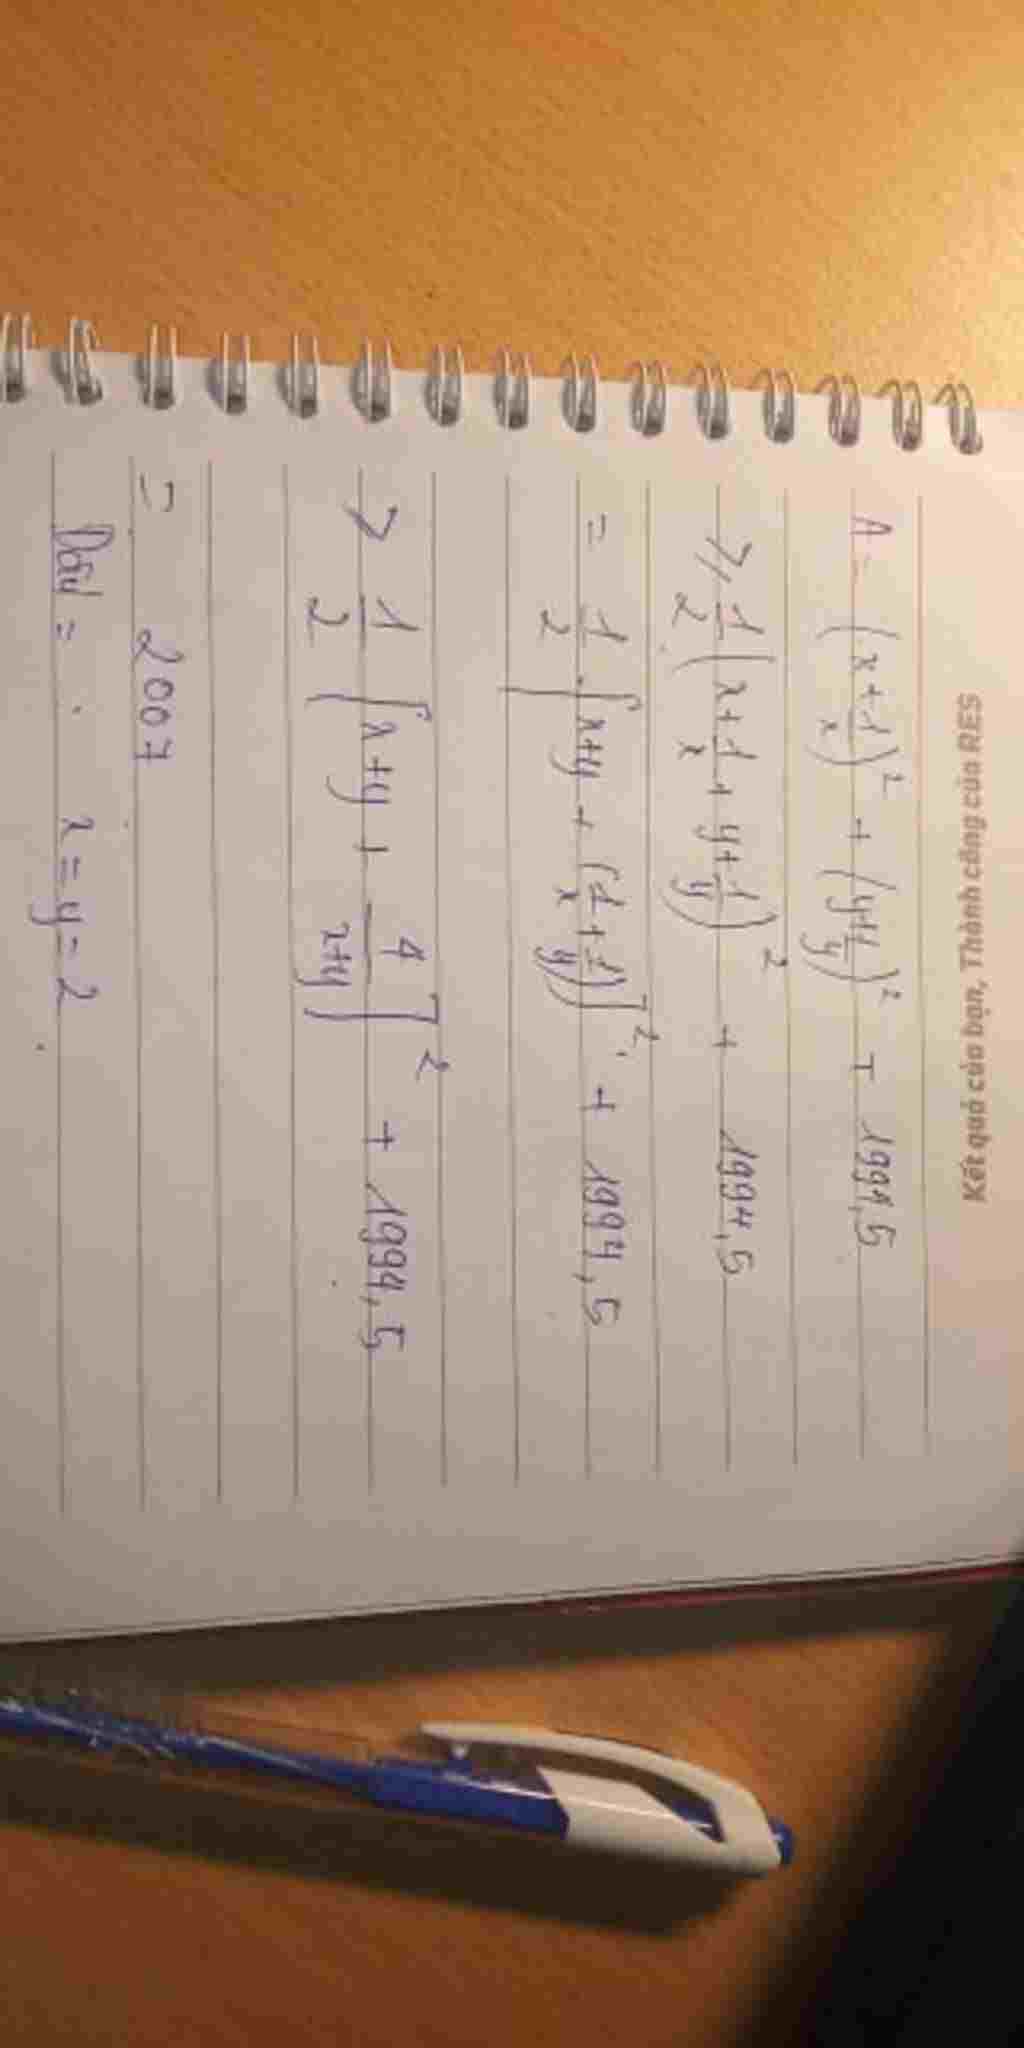 Kết quả của bạn, Thành công của RES
A = (x + 1/x)² + (y + 1/y)² + 1994,5
≥ 1/2 (x + 1/x + y + 1/y)² + 1994,5
= 1/2 · [x+y + (1/x + 1/y)]² + 1994,5
> 1/2 [x+y + 4/x+y]² + 1994,5
= 2007
Dấu = x = y = 2